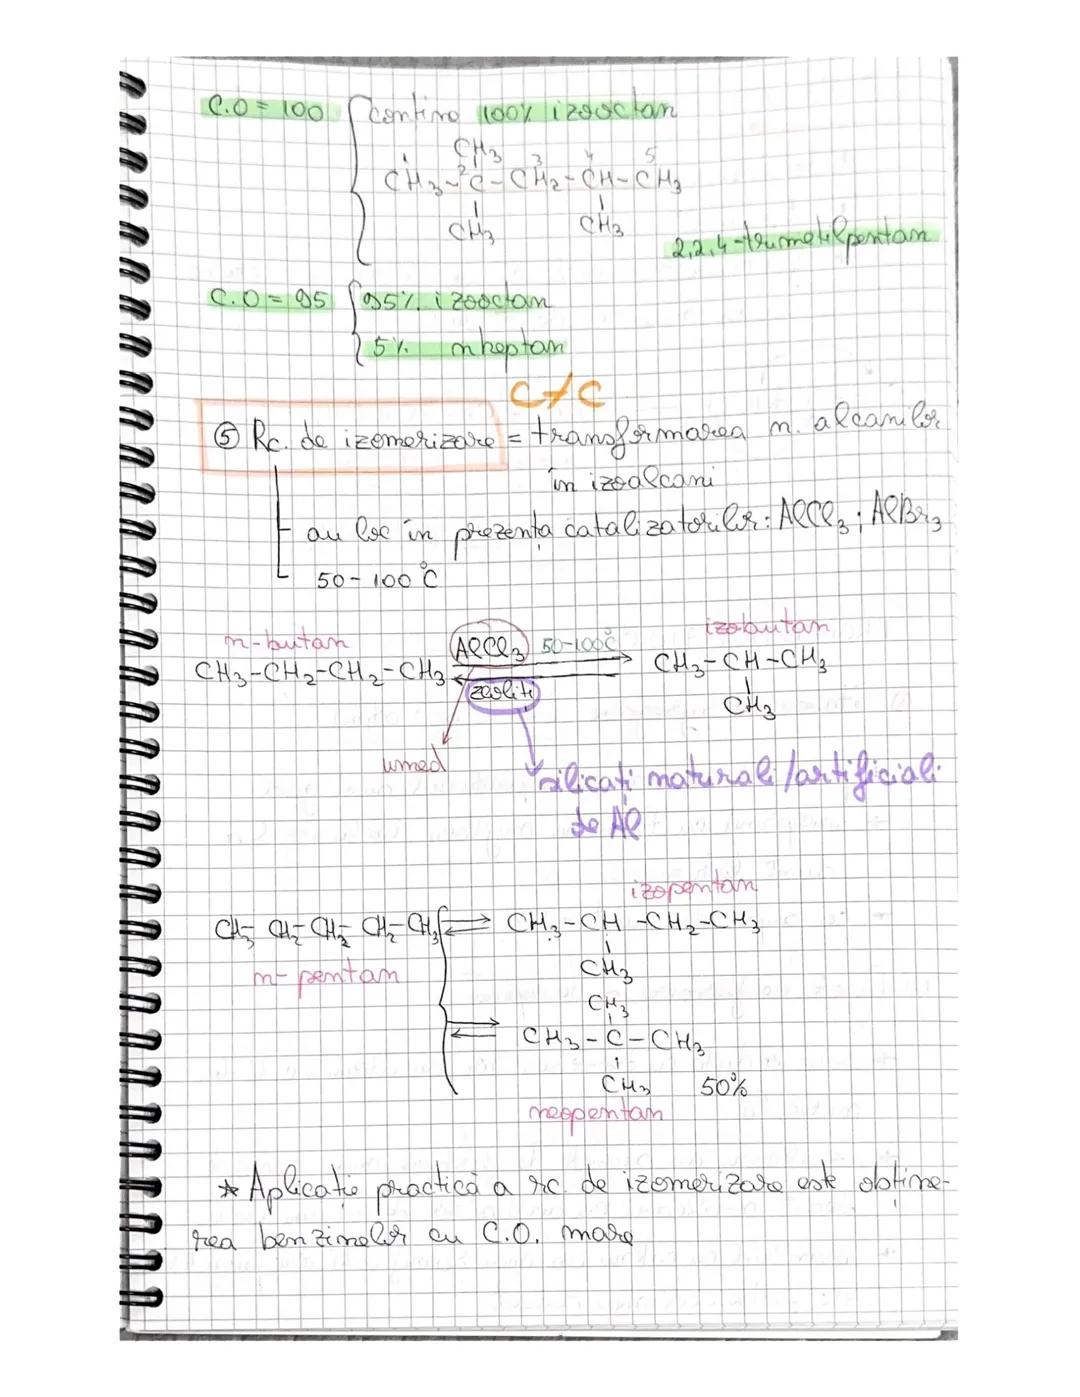 C.O = 100 { conține 100% izooctan
CH3
1 2 3 4 5
CH3-C-CH2-CH-CH3
CH3 CH3
2,2,4-trimetilpentan
C.O = 95 { 95% izooctan
5% n heptan
C-/-C
⑤ Rc. de izomerizare = transformarea n. alcanilor
în izoalcani
au loc în prezența catalizatorilor: AlCl3; AlBr3
50-100°C
n-butan AlCl3 50-100°C izobutan
CH3-CH2-CH2-CH3 ⇌ CH3-CH-CH3
zeoliți CH3
umed silicați naturali/artificiali
de Al
izopentan
CH3-CH2-CH2-CH2-CH3 ⇌ CH3-CH-CH2-CH3
n-pentan CH3
CH3
⇌ CH3-C-CH3
CH3 50%
neopentan
* Aplicație practică a rc. de izomerizare este obține-
rea benzinelor cu C.O. mare